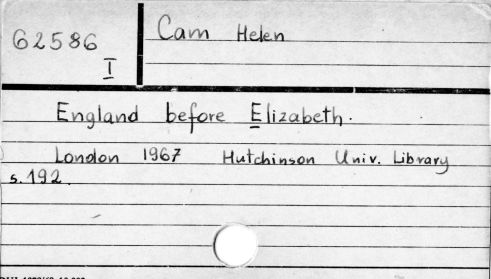 62586
I
Cam Helen
England before Elizabeth.
London 1967 Hutchinson Univ. Library
s. 192.